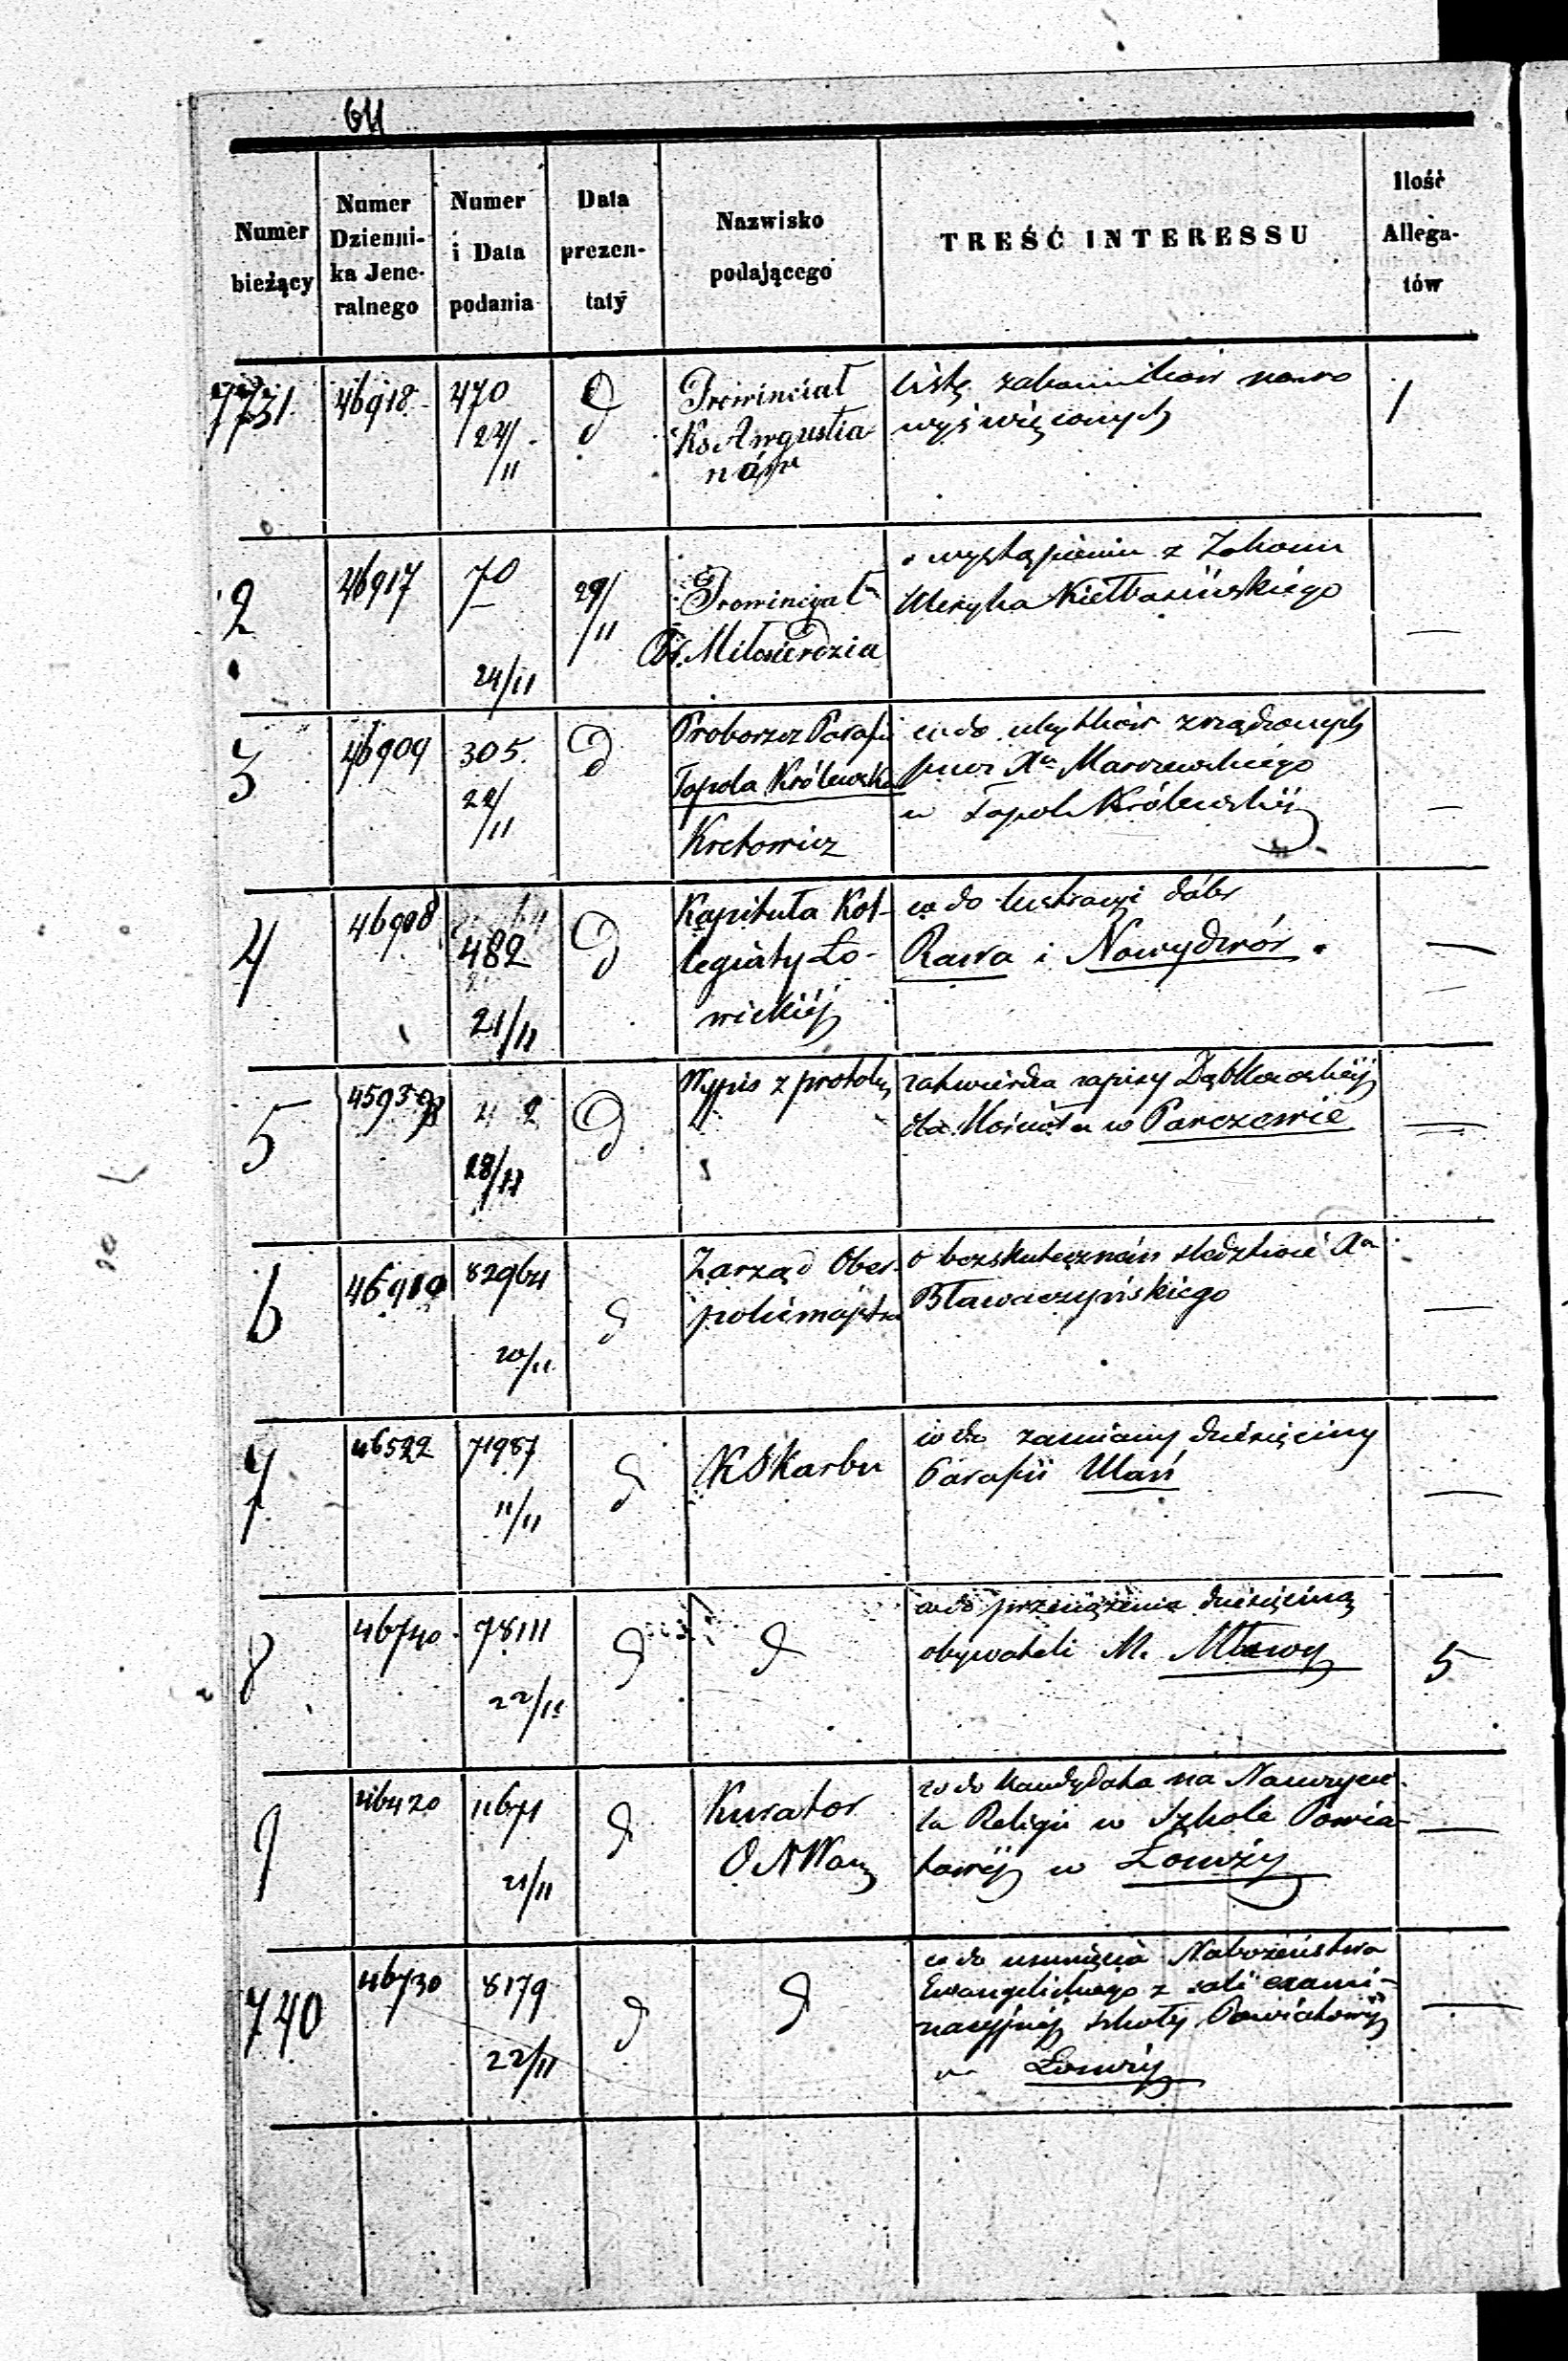 64
Numer bieżący
Numer Dzienni-ka Jene-ralnego
Numer i Data podania
Data prezen-taty
Nazwisko podającego
TREŚĆ INTERESSU
Ilość Allega-tów
7731
46918
470
24/11
d
Prowinciał
Ks Augustia
nów
listę zakonników nowo
wyświęconych
1
2
46917
70
24/11
29/11
Prowincyał
Br. Miłosierdzia
o wystąpieniu z Zakonu
Kiełbasińskiego
—
3
46909
305.
22/11
d
Proborszcz Parafii
Topola Królewska
Kretowicz
co do użytków zrządzonych
przez Xa Marszewskiego
w Topoli Królewskiéj
—
4
46908
482
21/11
d
Kapituła Kol-
legiaty Ło-
wickiéj
co do lustracyi dóbr
Rawa i Nowydwór.
—
5
4 2
28/11
d
Wypis z protok
zatwierdza zapisy Dąbkowskiéj
dla Kościoła w Parczewie
—
6
46910
82964
20/11
d
Zarząd Ober-
policmajstra
o bezskuteczném śledztwie Xa
Bławaczyńskiego
—
7
46522
71987
11/11
d
K Skarbu
co do zamiany dziesięciny
Parafii Ulań
—
8
46740
78111
22/11
d
d
co do przeciążenia dziesięciną
obywateli M. Mławy
5
9
46420
11671
21/11
d
Kurator
O N War
co do kandydata na Nauczycie-
la Religii w Szkole Powia-
towéj w Łomży
—
740
46730
8179
22/11
d
d
co do usunięcia Nabożeństwa
Ewangelickiego z sali exami-
nacyjnéj szkoły Powiatowéj
w Łomży
—